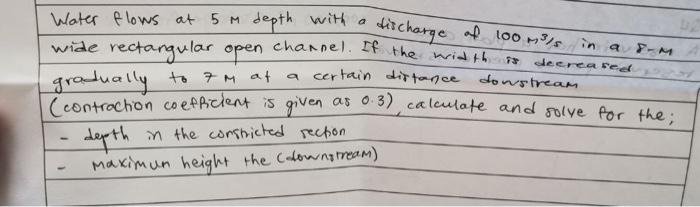 Water flows at 5 M depth with a discharge of 100 M³/s in a 8-M
wide rectangular open channel. If the width is decreased
gradually to 7 M at a certain distance dowstream
(contraction coefficient is given as 0.3), calculate and solve for the;
- depth in the constricted section
- maximun height the (downstream)